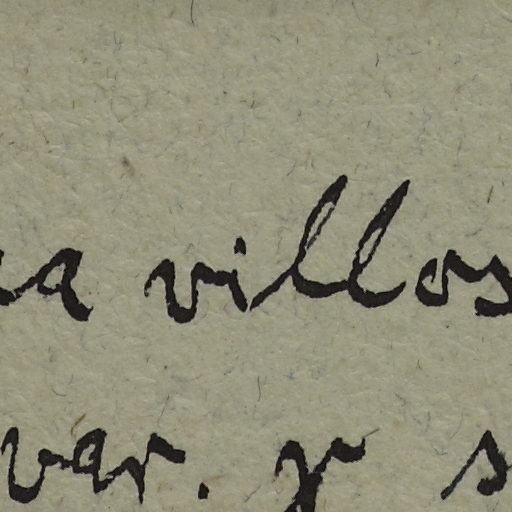 a villos
var. γ s